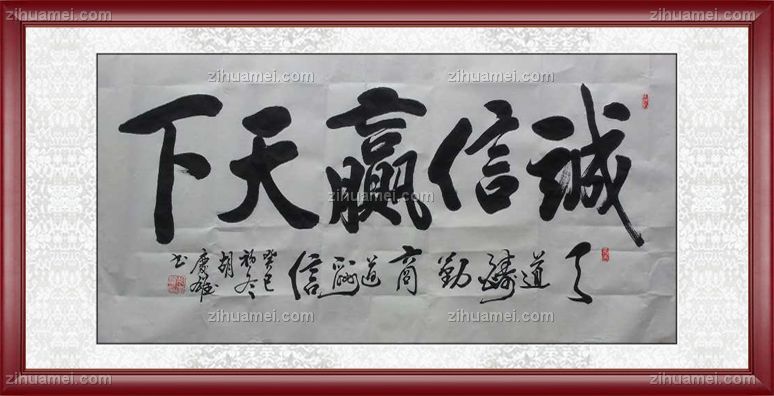 zihuamei.com zihuamei.com
zihuamei.com zihuamei.com
誠信贏天下
zihuamei.com
天道酬勤商道酬信
癸巳
初冬
胡
慶雄
书
zihuamei.com zihuamei.com
zihuamei.com zihuamei.com